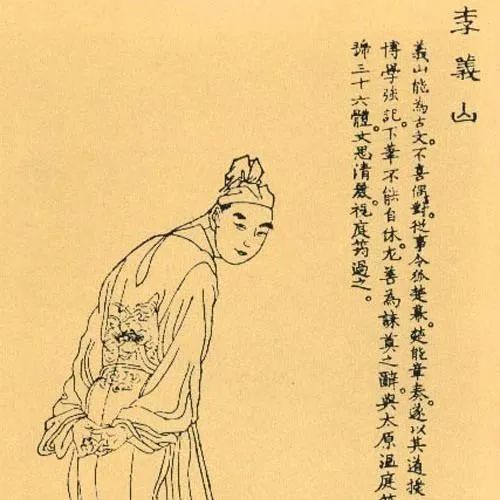 李義山
義山能為古文。不喜偶對。從事令狐楚幕。楚能章奏。遂以其道授
博學強記。下筆不能自休。尤善為誄奠之辭。與太原溫庭筠
號三十六體。文思清麗。視庭筠過之。